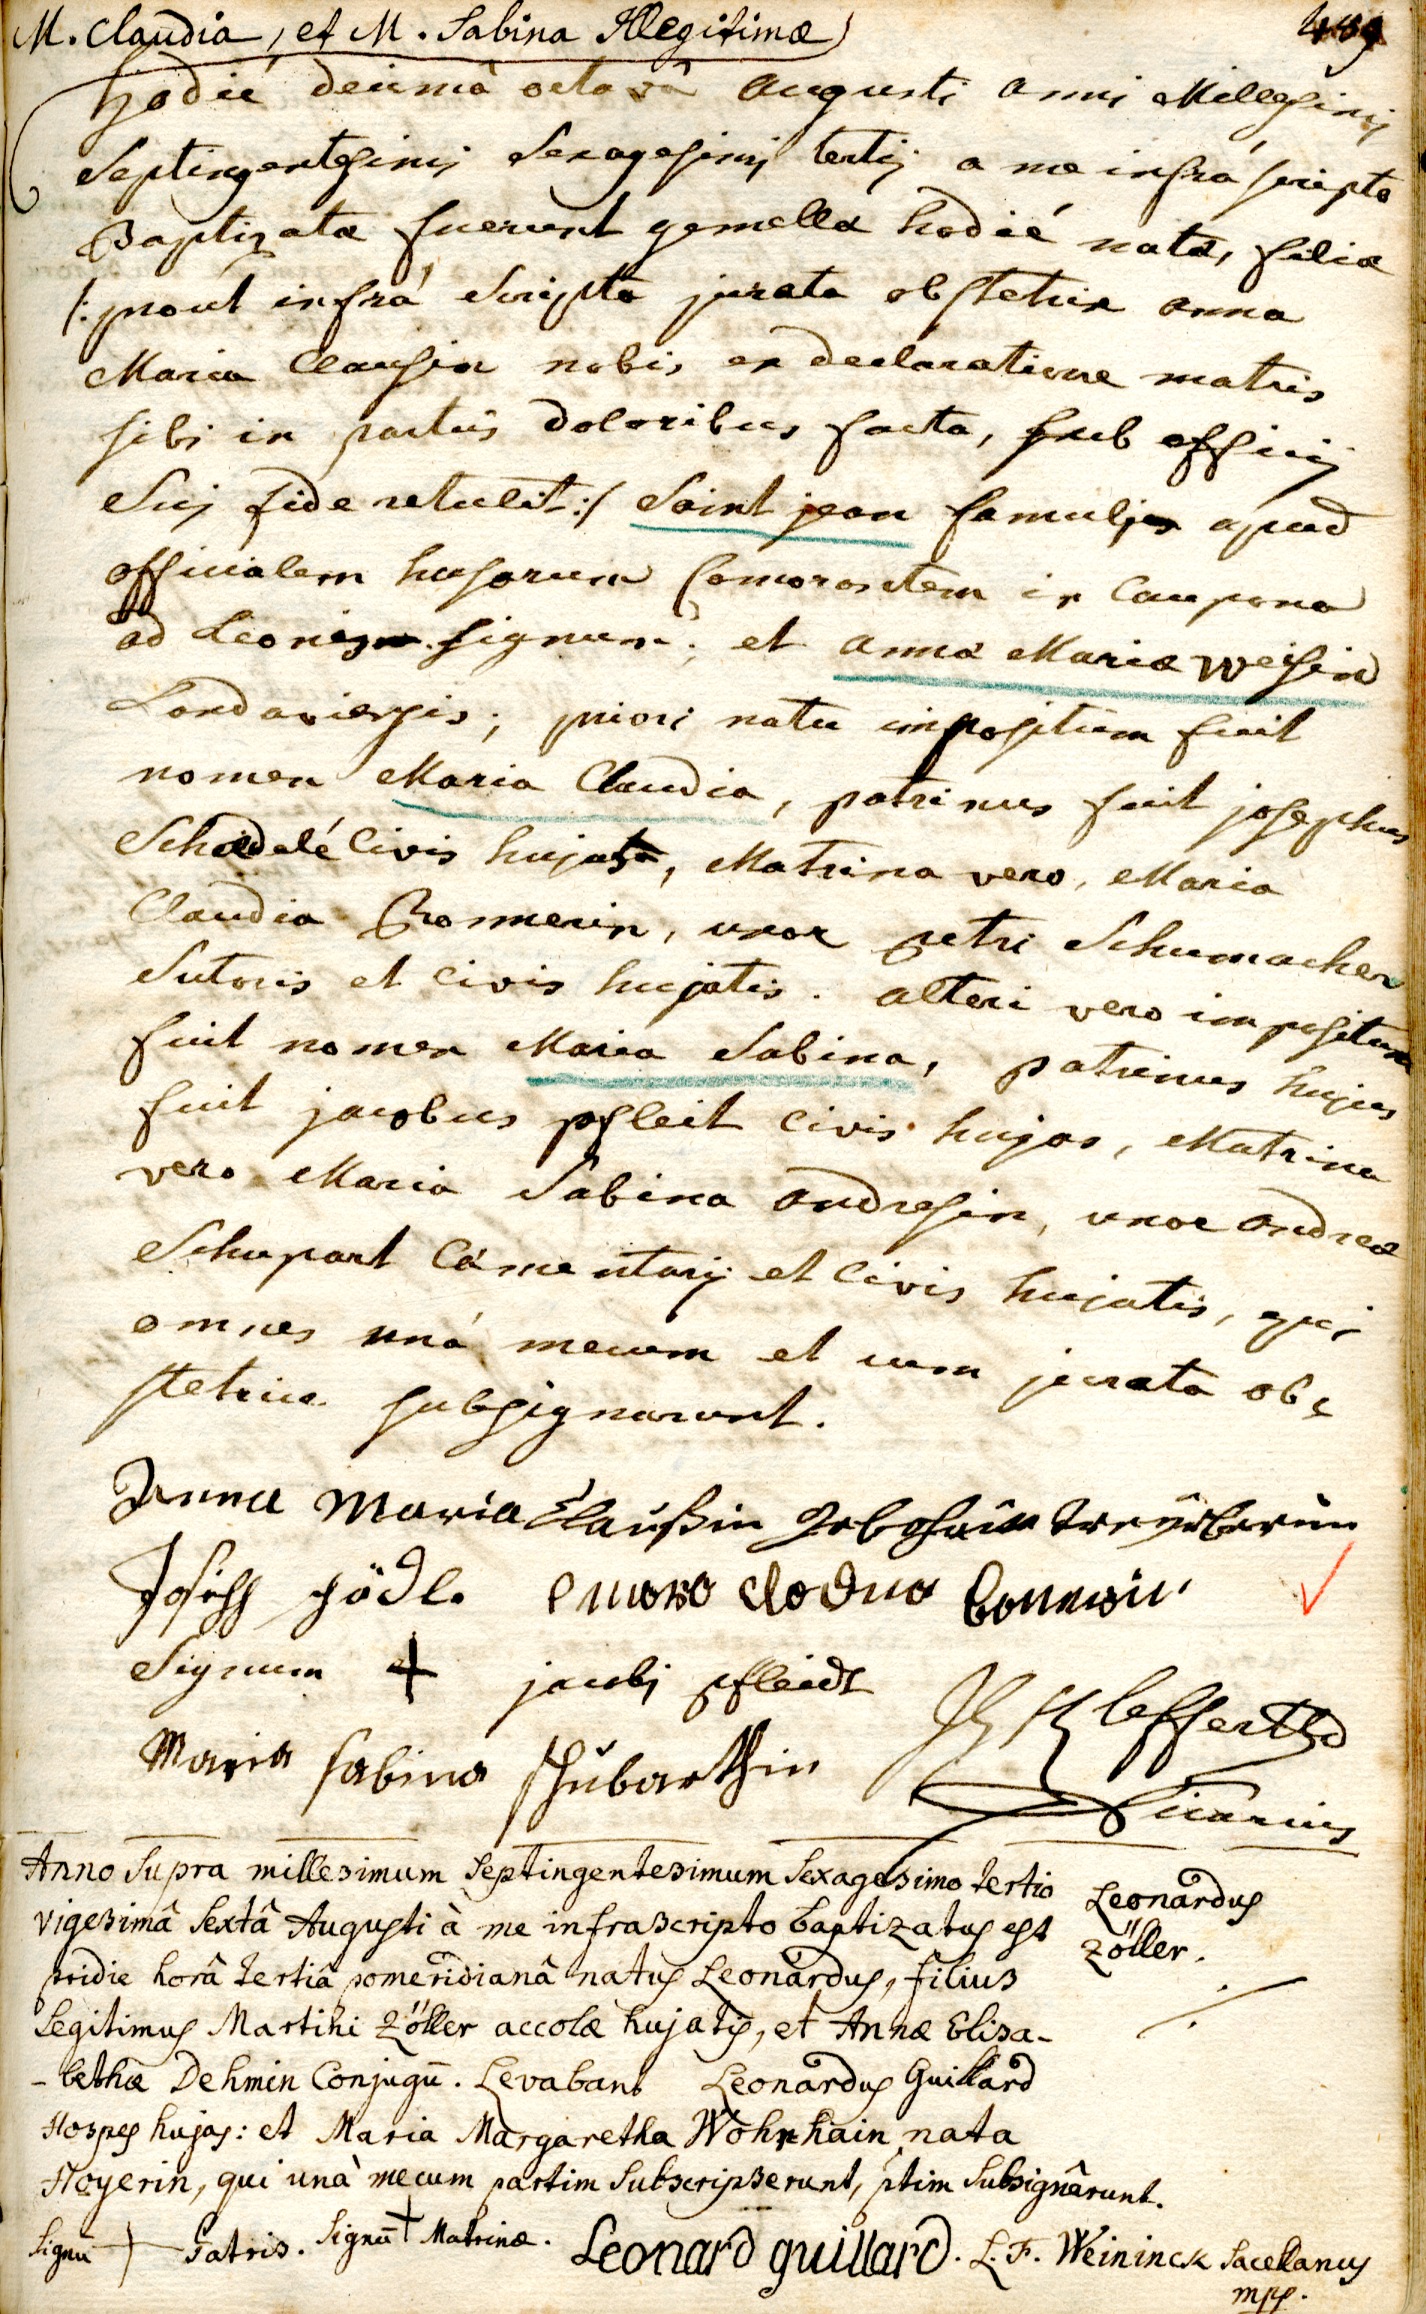 M. Claudia, et M. Sabina Illegitimæ
489
hodié decimâ octavâ Augusti anni Millesimj
Septingentesimj Sexagesimj tertij a me infrá scripto
Baptizatæ fuerunt gemellæ hodié natæ, filiæ
/: prout infrá Scripta jurata obstetrix anna
Maria Clausin nobis ex declaratione matris
sibi in partus doloribus facta, sub officij
Suj fide retulit :/ Saint jean famuli apud
officialem husarum Comorantem in Caupona
ad Leonis signum; et annæ Mariæ Weisin
Landaviensis; priori natu impositum fuit
nomen Maria Claudia, patrinus fuit josephus
Schædelé Civis hujas, Matrina vero, Maria
Claudia Bonnerin, uxor petri Schumacher
Sutoris et Civis hujatis. alteri vero impositum
fuit nomen Maria Sabina, patrinus hujus
fuit jacobus pfleit Civis hujas, Matrina
vero Maria Sabina andresin, uxor andreæ
Schupart Cæmentarij et Civis hujatis, qui
omnes uná mecum et cum jurata ob-
stetrice subsignarunt.
Anna Maria Claußin
Joseph schödl
Signum + jacobi pfleidt
Maria sabina schubarthin
Vicarius
Anno Supra millesimum Septingentesimum Sexagesimo tertio
vigesimâ Sextâ Augusti à me infrascripto baptizatus est
pridie horâ tertiâ pomeridianâ natus Leonardus, filius
Legitimus Martini Zöller accolæ hujatis, et Annæ Elisa-
-bethæ Dehmin Conjugū. Levabant Leonardus Guillard
Hospes hujas: et Maria Margaretha Wohnhain nata
Hoyerin, qui unà mecum partim Subscripserunt, ptim Subsignârunt.
Leonardus
Zöller.
Signū + Patris. Signū + Matrinæ. Leonard guillard. L. F. Weininck Sacellanus
mpp.